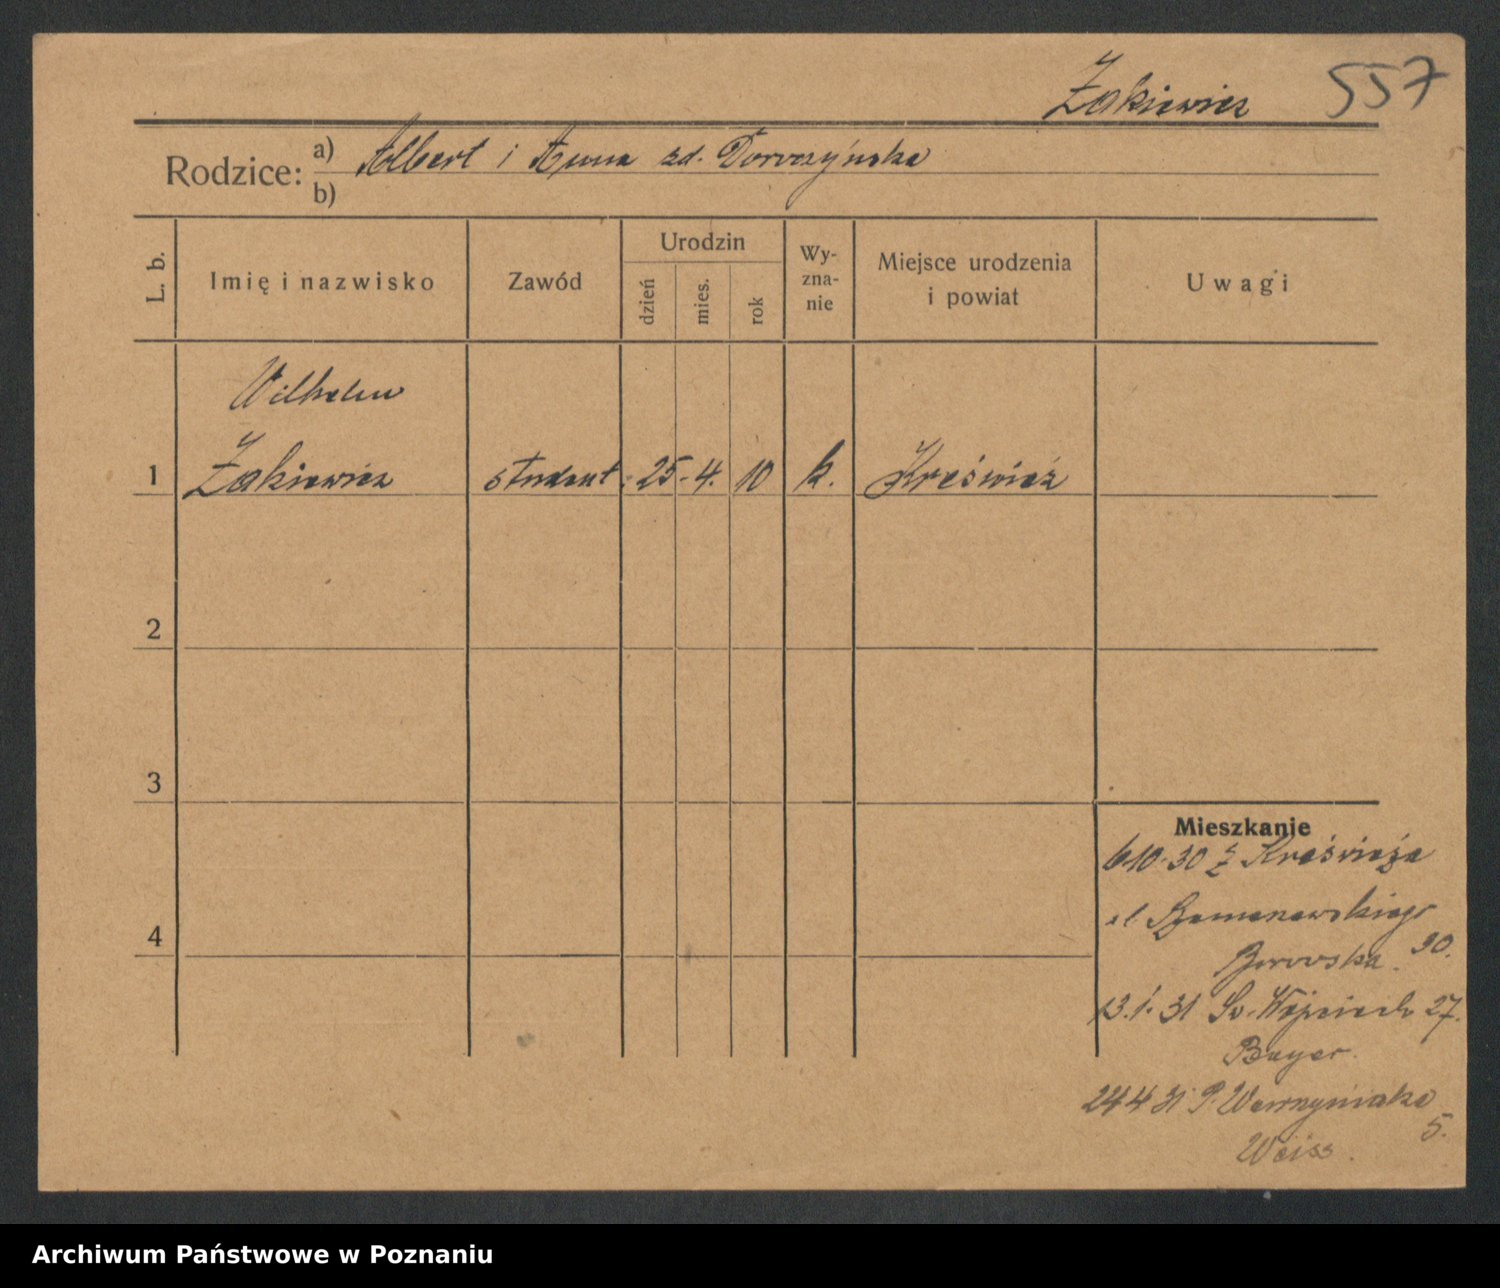 Żakiewicz 557
Rodzice: a) Albert i Anna zd.
b)
L. b.
Imię i nazwisko
Zawód
Urodzin
dzień
mies.
rok
Wy-
zna-
nie
Miejsce urodzenia
i powiat
Uwagi
Wilhelm
1 Żakiewicz student 25. 4. 10 k. Kreświcź
2
3
4
Mieszkanie
6 10. 30 z
ul Szamarzewskiego
Borowska 30.
13. 1. 31 Św. Wojciech 27.
Bayer.
24 4 31 P. Wawrzyniaka
5.
Weiss.
Archiwum Państwowe w Poznaniu